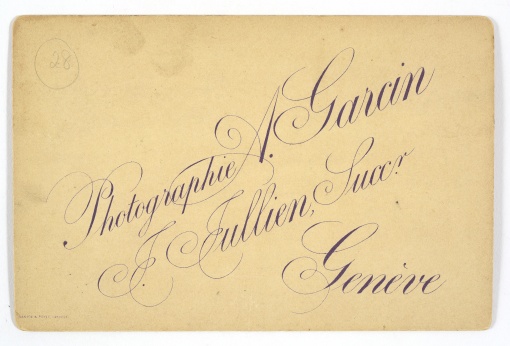 28
Photographie A. Garcin
J. Jullien, Succr
Genève